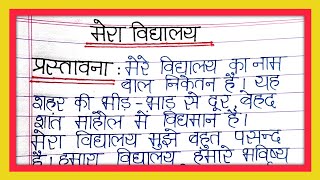 मेरा विद्यालय
प्रस्तावना : मेरे विद्यालय का नाम
बाल निकेतन है। यह
शहर की भीड़-भाड़ से दूर, बेहद
शांत माहौल में विद्यमान है।
मेरा विद्यालय मुझे बहुत पसन्द
है। हमारा विद्यालय, हमारे भविष्य